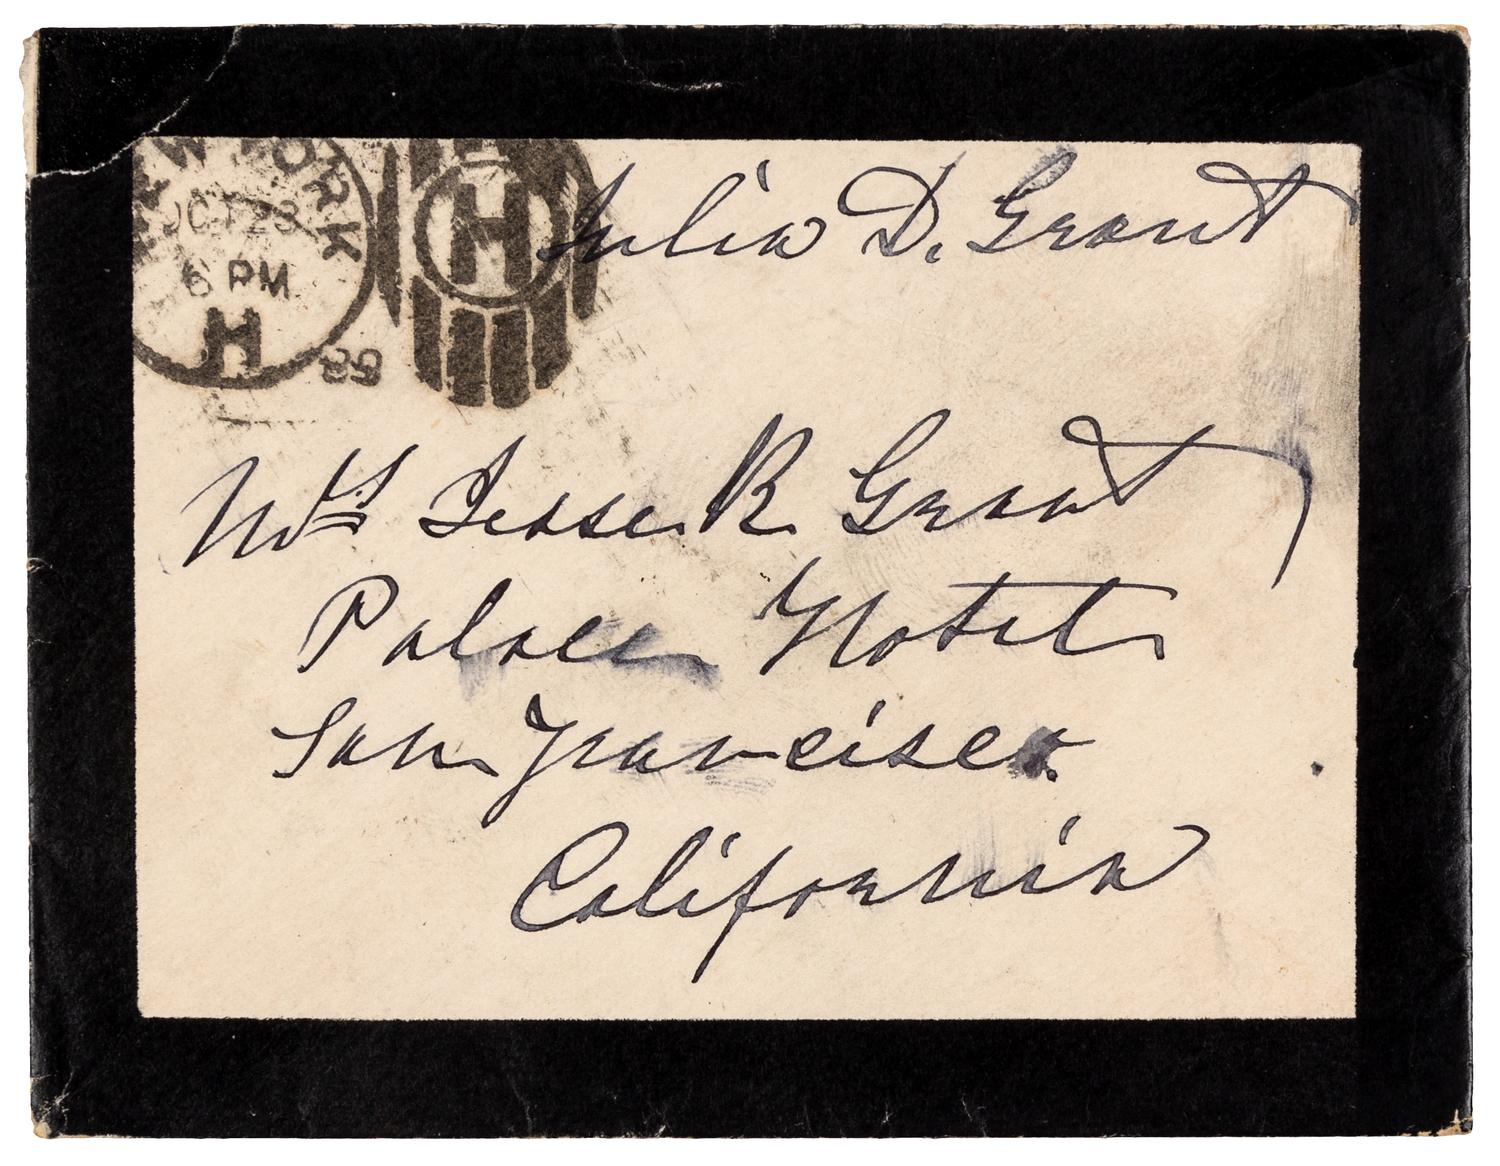 NEW YORK
OCT 23
6 PM
H
88
H
Julia D. Grant
Mrs Jesse R. Grant
Palace Hotel
San Francisco.
California